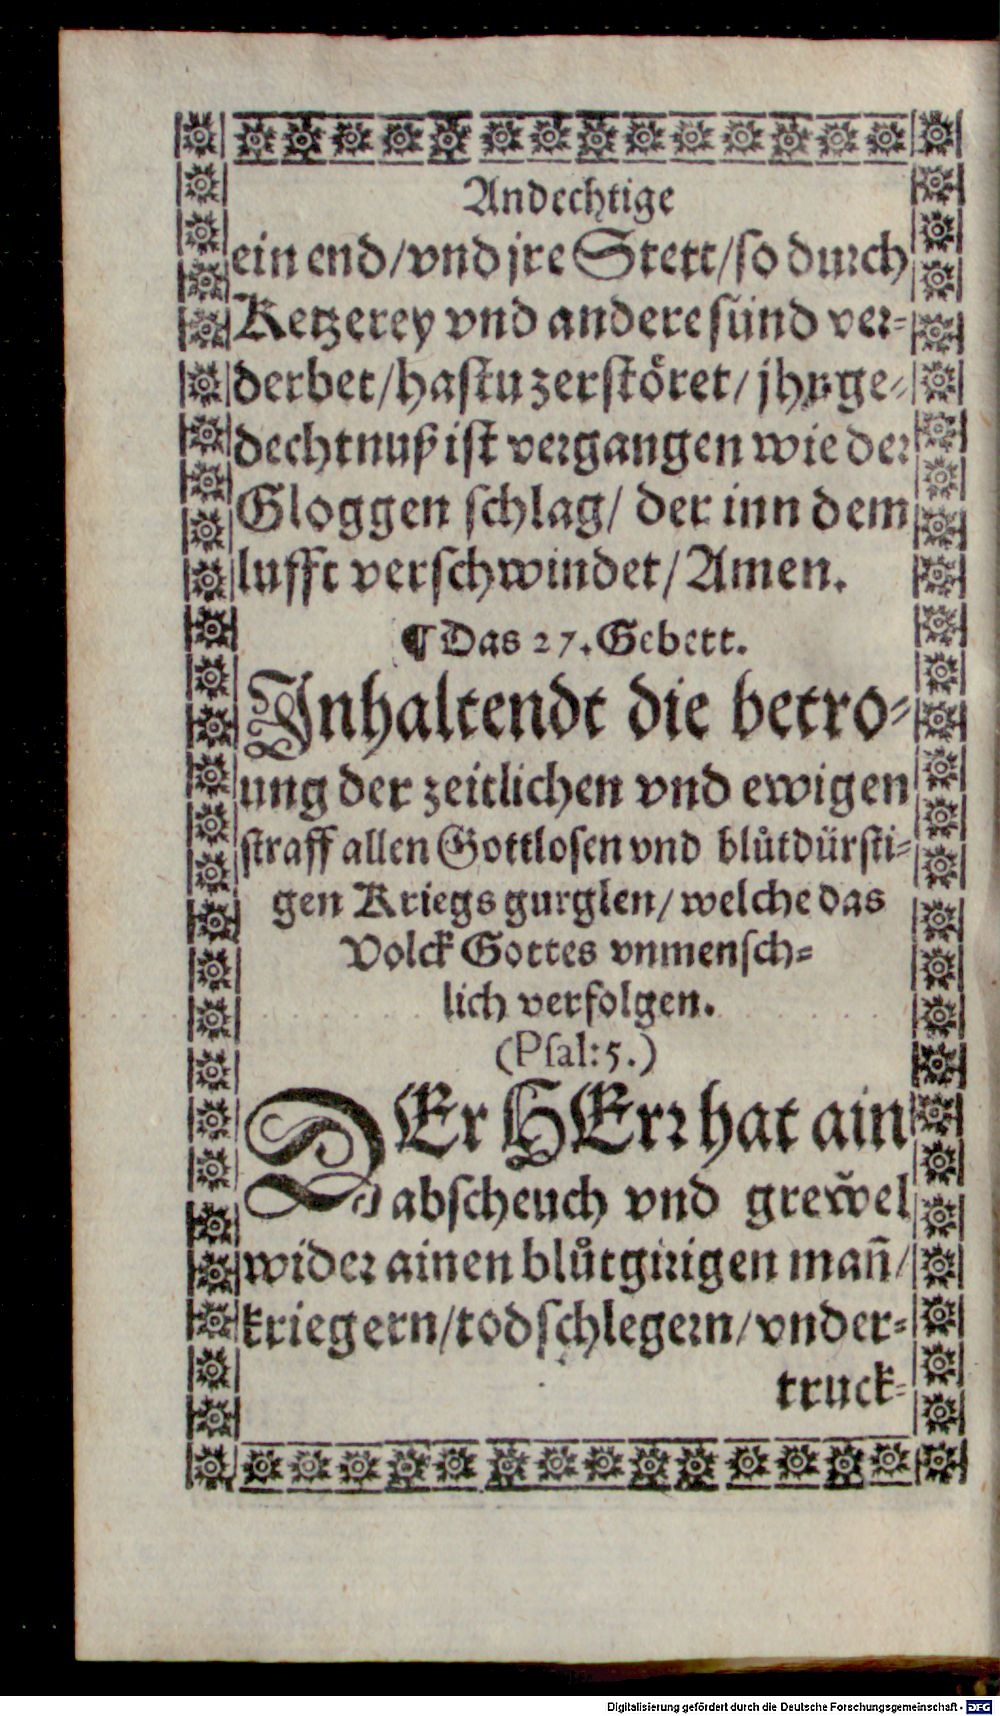 Andechtige
ein end/vnd jre Stett/so durch
Ketzerey vnd andere sünd ver-
derbet/hastu zerstöret/ jhr ge-
dechtnuß ist vergangen wie der
Gloggen schlag/ der inn dem
lufft verschwindet/Amen.
¶ Das 27. Gebett.
Inhaltendt die betro-
ung der zeitlichen vnd ewigen
straff allen Gottlosen vnd blůtdürsti-
gen Kriegs gurglen/ welche das
Volck Gottes vnmensch-
lich verfolgen.
(Psal:5.)
DEr HErr hat ain
abscheuch vnd grew̆el
wider ainen blůtgirigen man̄/
kriegern/todschlegern/vnder-
truck-
Digitalisierung gefördert durch die Deutsche Forschungsgemeinschaft - DFG